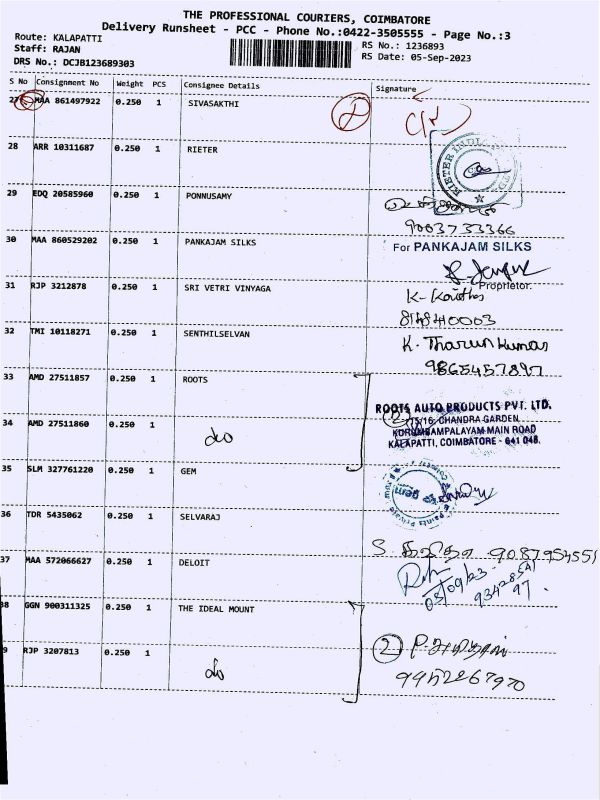 THE PROFESSIONAL COURIERS, COIMBATORE
Delivery Runsheet - PCC - Phone No.:0422-3505555 - Page No.:3
Route: KALAPATTI
Staff: RAJAN
DRS No.: DCJB123689303
RS No.: 1236893
RS Date: 05-Sep-2023
S No Consignment No Weight PCS Consignee Details Signature
27 MAA 861497922 0.250 1 SIVASAKTHI
28 ARR 10311687 0.250 1 RIETER
29 EDQ 20585960 0.250 1 PONNUSAMY
9003733366
30 MAA 860529202 0.250 1 PANKAJAM SILKS
For PANKAJAM SILKS
Proprietor.
31 RJP 3212878 0.250 1 SRI VETRI VINYAGA
8148410003
32 TMI 10118271 0.250 1 SENTHILSELVAN
K. Tharun kumar
9865457897
33 AMD 27511857 0.250 1 ROOTS
ROOTS AUTO PRODUCTS PVT. LTD.
34 AMD 27511860 0.250 1 do
CHANDRA GARDEN
KURUMBAMPALAYAM MAIN ROAD
KALAPATTI, COIMBATORE - 641 048.
35 SLM 327761220 0.250 1 GEM
gem
36 TDR 5435062 0.250 1 SELVARAJ
9087954551
37 MAA 572066627 0.250 1 DELOIT
05/09/23
38 GGN 900311325 0.250 1 THE IDEAL MOUNT
2
39 RJP 3207813 0.250 1 do
9952267970